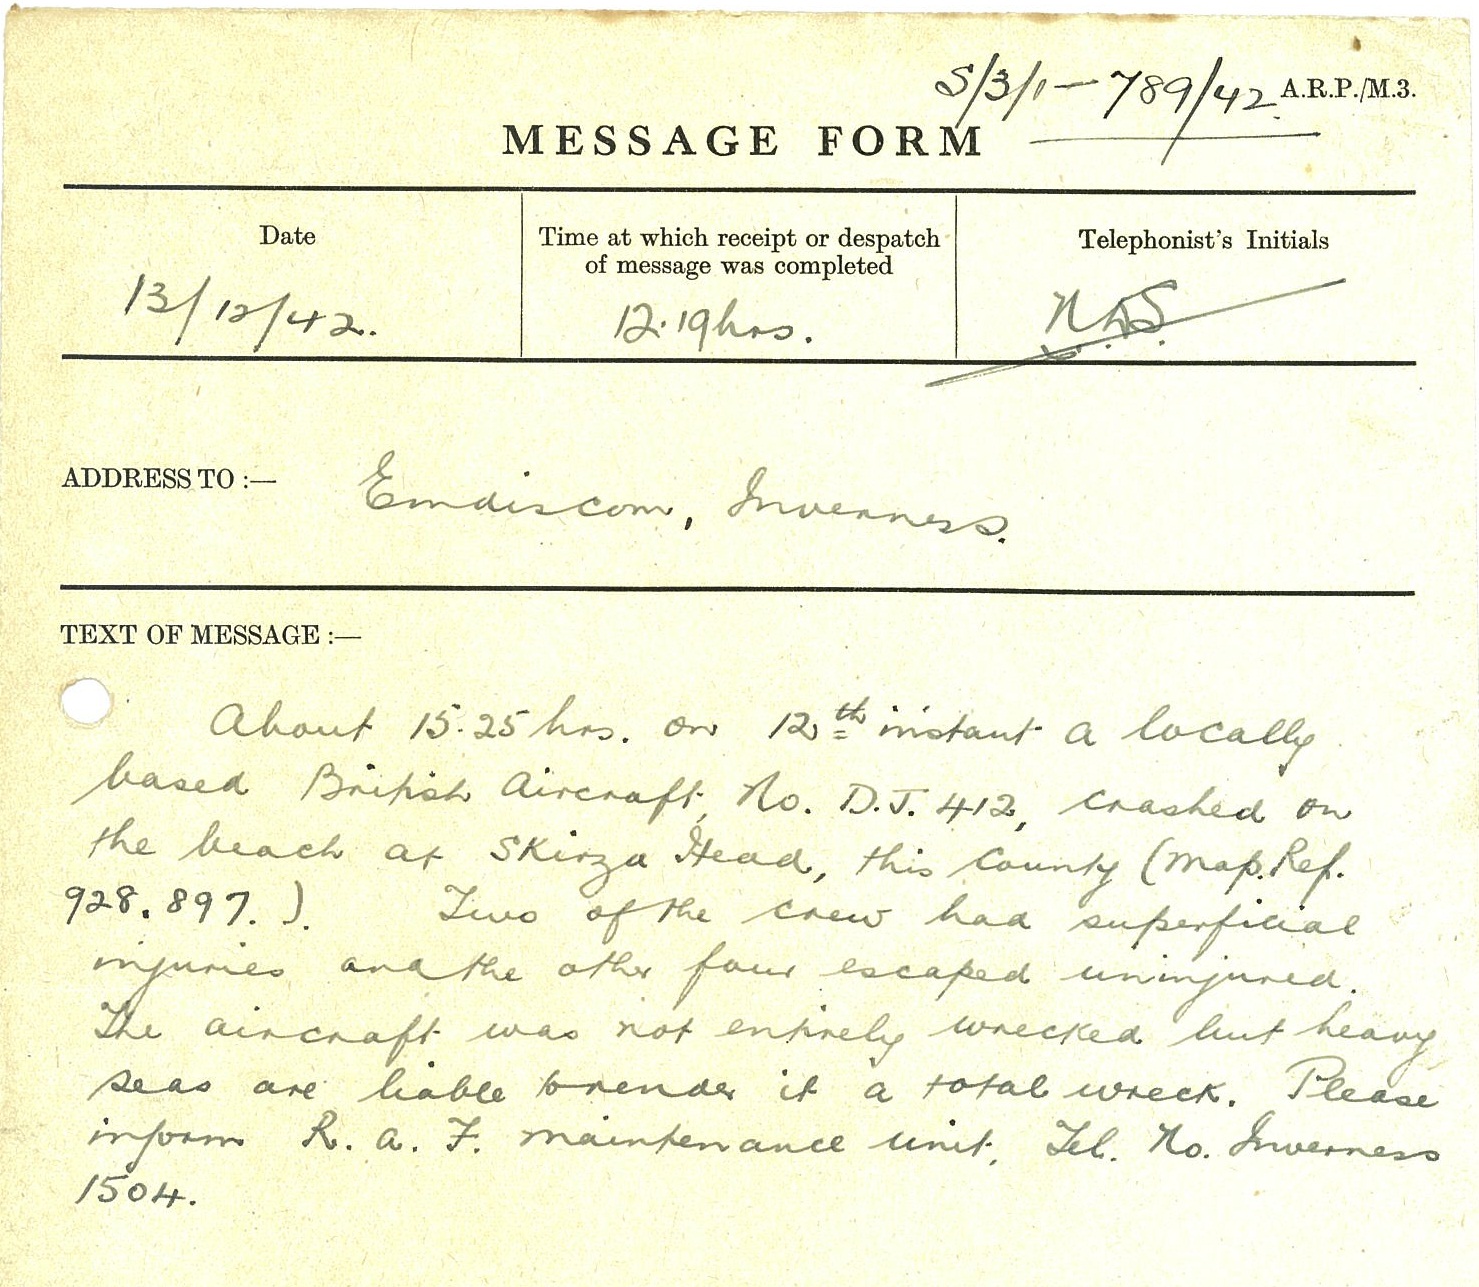 S/3/1 — 789/42. A.R.P./M.3.
MESSAGE FORM
Date
13/12/42.
Time at which receipt or despatch
of message was completed
12.19hrs.
Telephonist's Initials
ADDRESS TO :— Emdiscom, Inverness.
TEXT OF MESSAGE :—
About 15.25 hrs. on 12th instant a locally
based British Aircraft, No. D.J. 412, crashed on
the beach at Skirza Head, this County (Map. Ref.
928.897.). Two of the crew had superficial
injuries and the other four escaped uninjured.
The aircraft was not entirely wrecked but heavy
seas are liable to render it a total wreck. Please
inform R.A.F. maintenance unit, Tel. No. Inverness
1504.